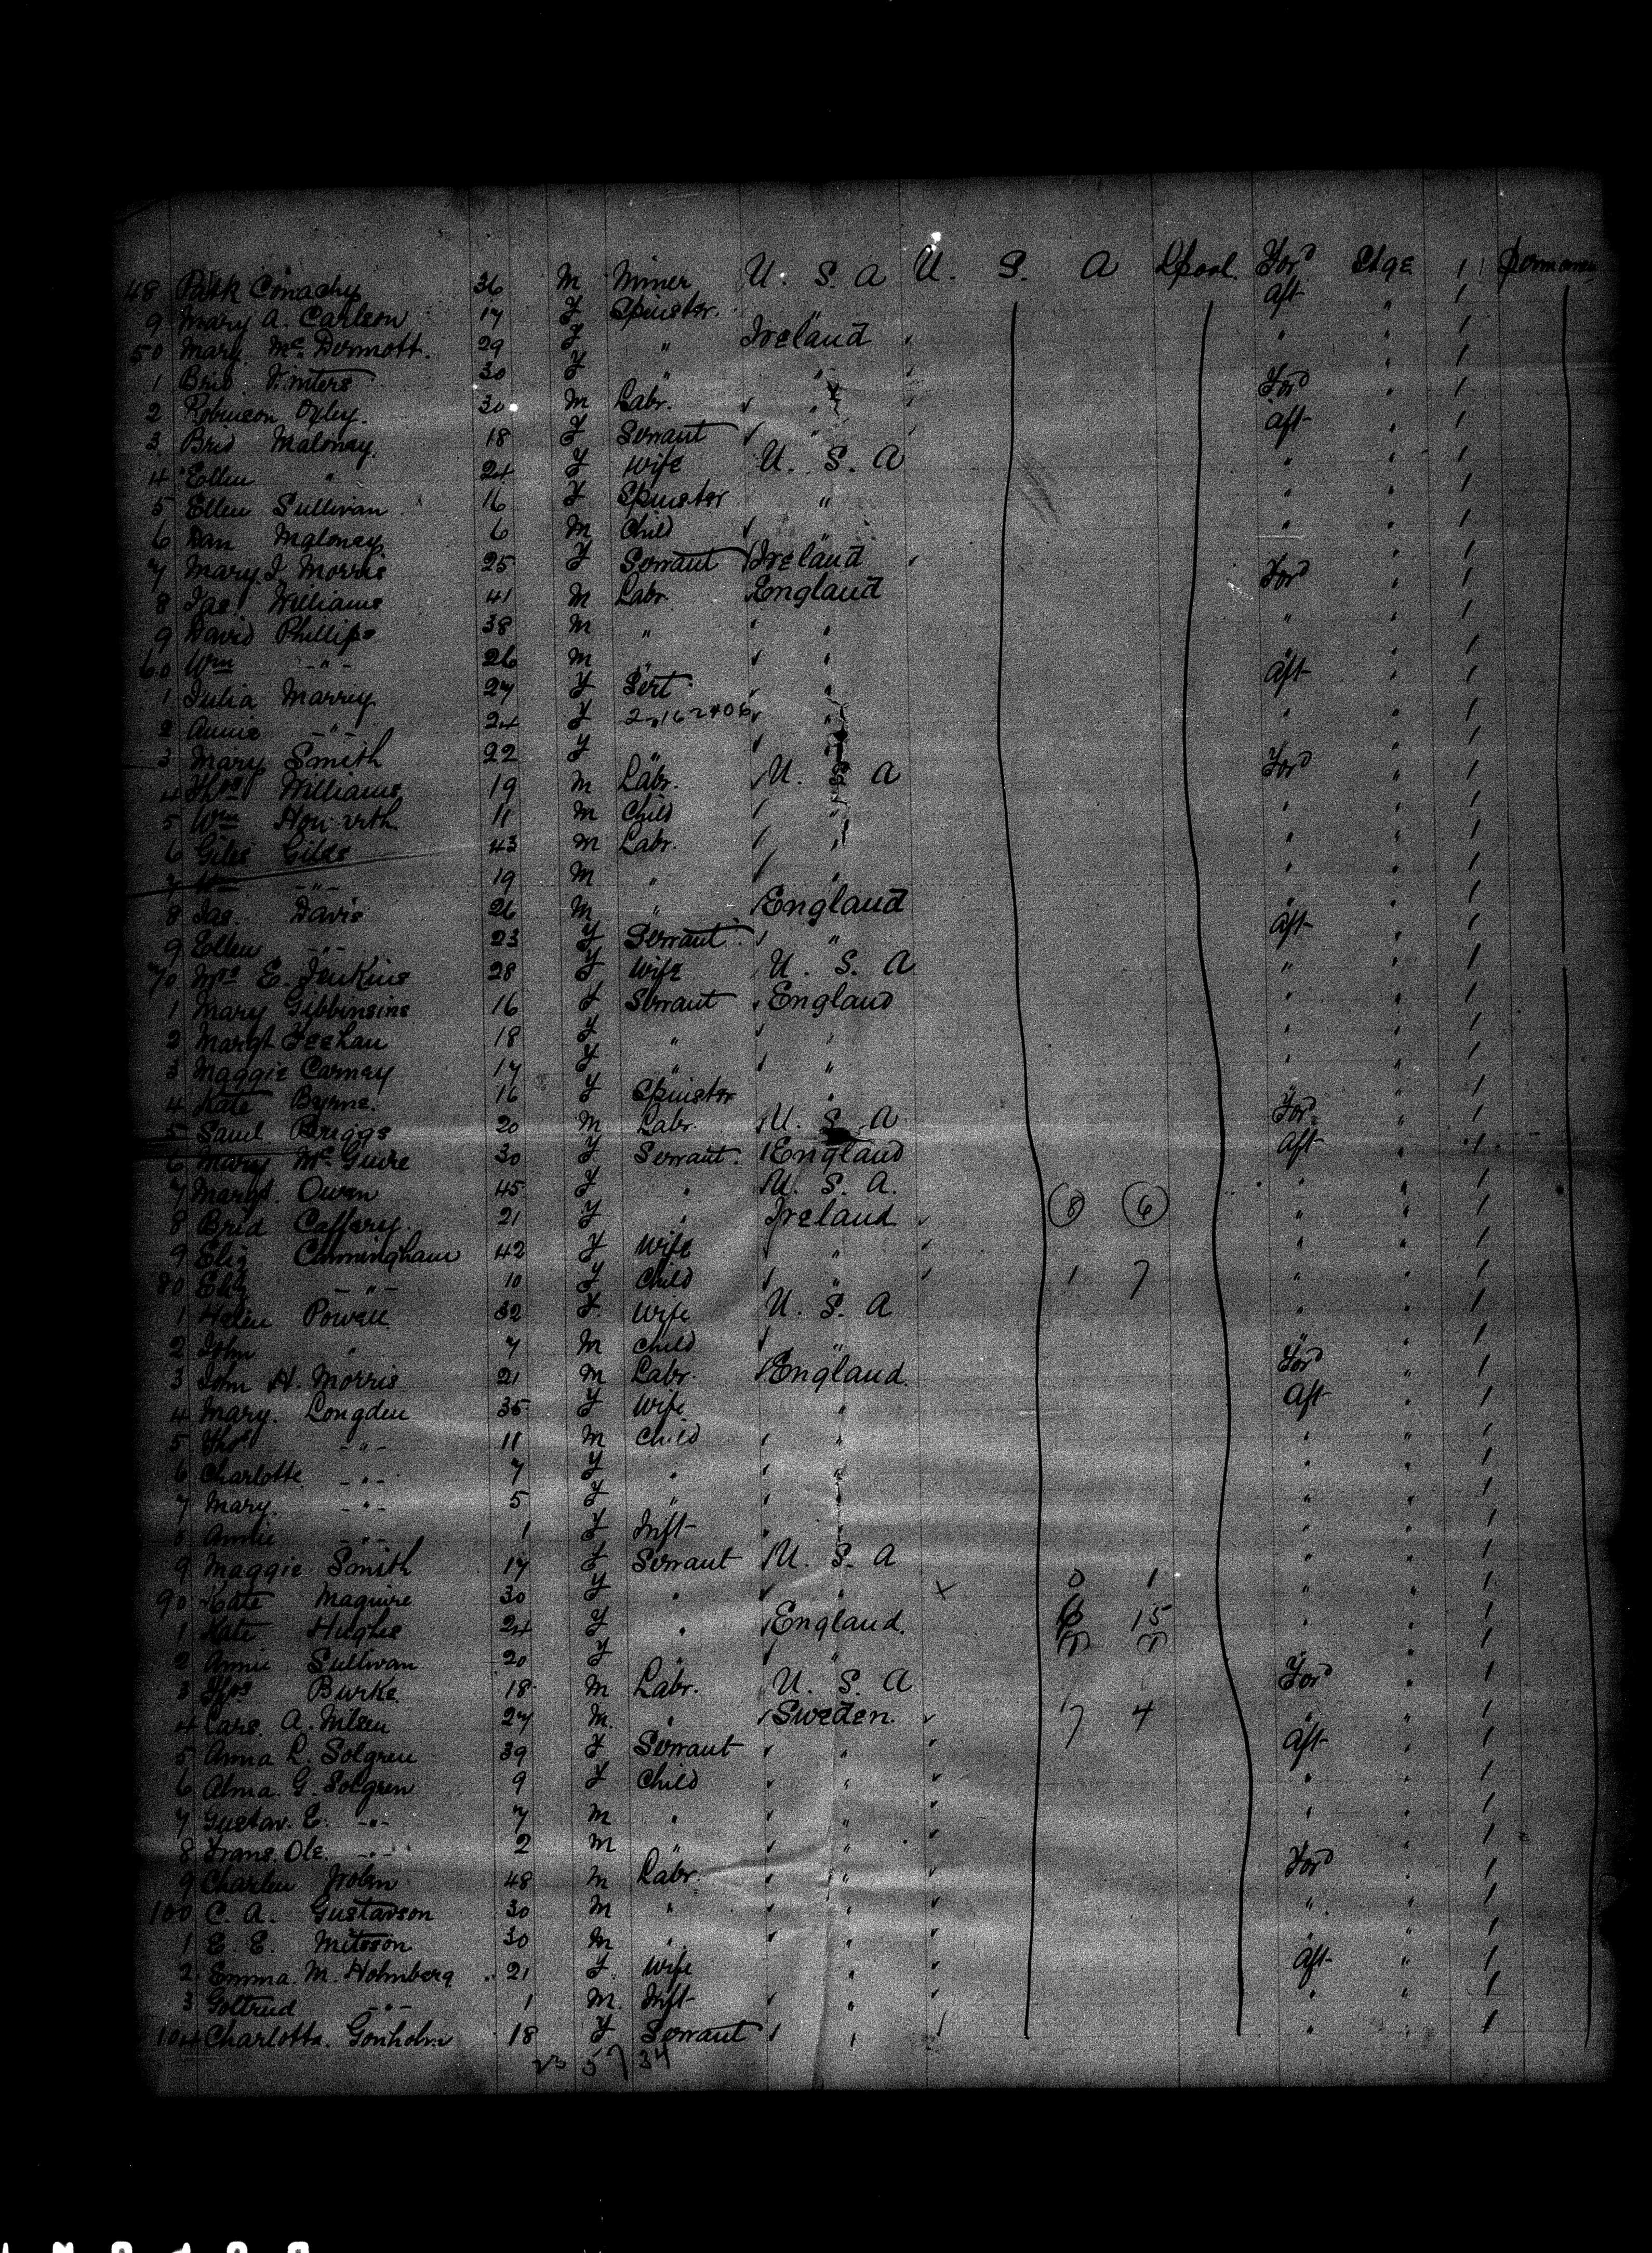 48 Patk Conachy 36 M Miner U. S. A U. S. A Lpool. For'd Stge 1
9 Mary A. Carlson 17 F Spinster. " Aft " 1
50 Mary McDermott. 29 F " Ireland " " 1
1 Brid Winters 30 F " " " " 1
2 Robinson Oxley. 30 M Labr. " For'd " 1
3 Brid Maloney. 18 F Servant " Aft " 1
4 Ellen " 24 F Wife U. S. A " " 1
5 Ellen Sullivan 16 F Spinster " " " 1
6 Dan Maloney 6 M Child " " " 1
7 Mary J. Morris 25 F Servant Ireland " " 1
8 Jas. Williams 41 M Labr. England For'd " 1
9 David Phillips 38 M " " " " 1
60 Wm -"- 26 M " " " " 1
1 Julia Marrey 27 F Sert " Aft " 1
2 Annie -"- 24 F 2-162406 " " " 1
3 Mary Smith 22 F " " " " 1
4 Thos Williams 19 M Labr. U. S. A For'd " 1
5 Wm Howarth 11 M Child " " " 1
6 Giles Gilds 43 M Labr. " " " 1
7 Wm -"- 19 M " " " " 1
8 Jas. Davis 26 M " England " " 1
9 Ellen -"- 23 F Servant " Aft " 1
70 Mrs E. Jenkins 28 F Wife U. S. A " " 1
1 Mary Gibbinsins 16 F Servant England " " 1
2 Margt Feehan 18 F " " " " 1
3 Maggie Carney 17 F " " " " 1
4 Kate Byrne. 16 F Spinster " " " 1
5 Saml Briggs 20 M Labr. U. S. A For'd " 1
6 Mary McGuire 30 F Servant. England Aft " 1
7 Margt. Owen 45 F " U. S. A. " " 1
8 Brid Caffery. 21 F " Ireland 8 6 " " 1
9 Eliz Cunningham 42 F Wife " " " 1
80 Eliz -"- 10 F Child " 1 7 " " 1
1 Helen Powell 32 F Wife U. S. A " " 1
2 John " 7 M Child " " " 1
3 John H. Morris 21 M Labr. England. For'd " 1
4 Mary. Longden 35 F Wife " Aft " 1
5 Thos -"- 11 M Child " " " 1
6 Charlotte -"- 7 F " " " " 1
7 Mary. -"- 5 F " " " " 1
8 Annie -"- 1 F Inft " " " 1
9 Maggie Smith 17 F Servant U. S. A " " 1
90 Kate Maguire 30 F " " x 0 1 " " 1
1 Kate Hughes 24 F " England. 15 " " 1
2 Annie Sullivan 20 F " " " " 1
3 Thos Burke 18 M Labr. U. S. A For'd " 1
4 Lars. A. Nilsen 27 M. " Sweden. 7 4 " " 1
5 Anna L. Solgren 39 F Servant " Aft " 1
6 Alma. G. Solgren 9 F Child " " " 1
7 Gustav. E. -"- 7 M " " " " 1
8 Frans. Ole. -"- 2 M " " " " 1
9 48 M Labr. " For'd " 1
100 C. A. Gustavson 30 M " " " " 1
1 E. E. 30 M " " " " 1
2 Emma. M. Holmberg 21 F Wife " Aft " 1
3 Goltrud -"- 1 M. Inft " " " 1
104 Charlotta. Gonholm 18 F Servant " " " 1
23 57 34